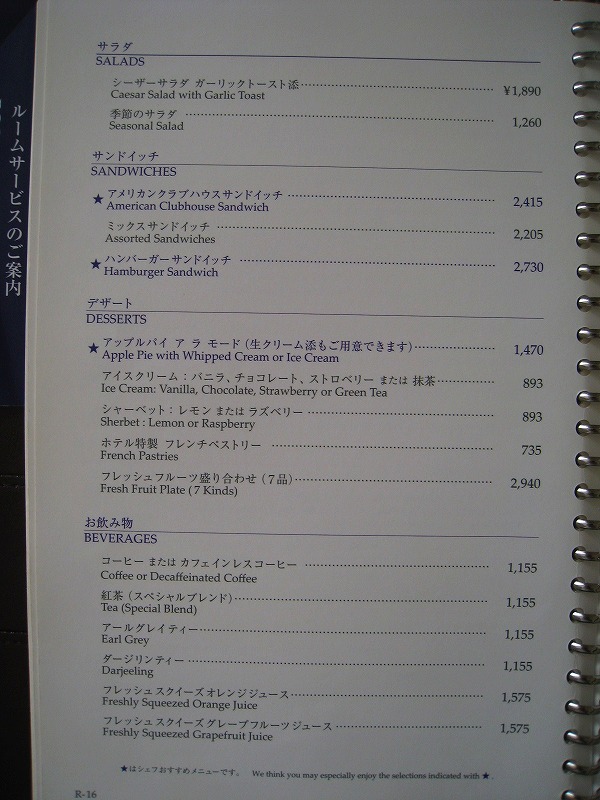 ルームサービスのご案内
サラダ
SALADS
シーザーサラダ ガーリックトースト添 ¥1,890
Caesar Salad with Garlic Toast
季節のサラダ 1,260
Seasonal Salad
サンドイッチ
SANDWICHES
★ アメリカンクラブハウスサンドイッチ 2,415
American Clubhouse Sandwich
ミックスサンドイッチ 2,205
Assorted Sandwiches
★ ハンバーガーサンドイッチ 2,730
Hamburger Sandwich
デザート
DESSERTS
★ アップルパイ ア ラ モード (生クリーム添もご用意できます) 1,470
Apple Pie with Whipped Cream or Ice Cream
アイスクリーム : バニラ、チョコレート、ストロベリー または 抹茶 893
Ice Cream: Vanilla, Chocolate, Strawberry or Green Tea
シャーベット : レモン または ラズベリー 893
Sherbet : Lemon or Raspberry
ホテル特製 フレンチペストリー 735
French Pastries
フレッシュフルーツ盛り合わせ (7品) 2,940
Fresh Fruit Plate (7 Kinds)
お飲み物
BEVERAGES
コーヒー または カフェインレスコーヒー 1,155
Coffee or Decaffeinated Coffee
紅茶 (スペシャルブレンド) 1,155
Tea (Special Blend)
アールグレイティー 1,155
Earl Grey
ダージリンティー 1,155
Darjeeling
フレッシュスクイーズオレンジジュース 1,575
Freshly Squeezed Orange Juice
フレッシュスクイーズグレープフルーツジュース 1,575
Freshly Squeezed Grapefruit Juice
★はシェフおすすめメニューです。 We think you may especially enjoy the selections indicated with ★ .
R-16